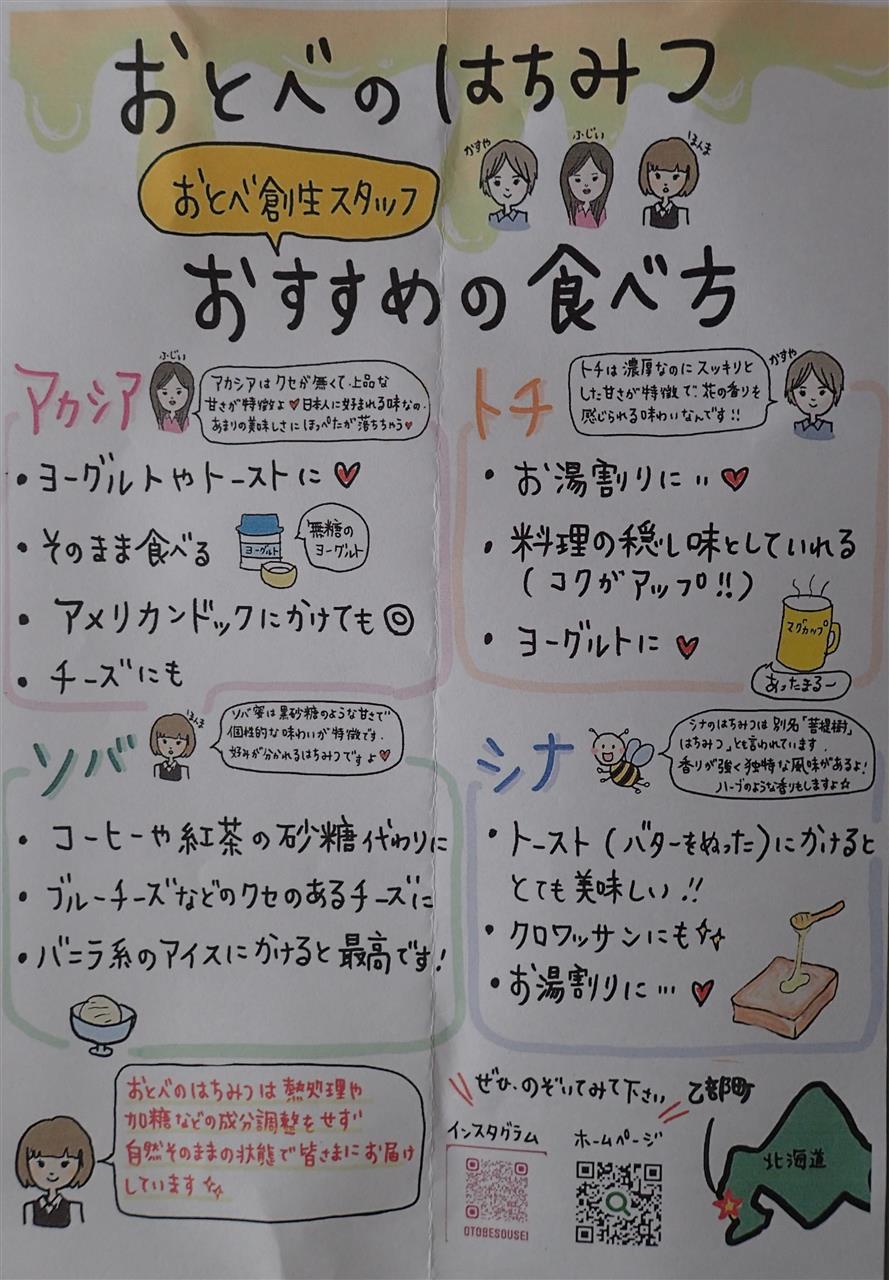 おとべのはちみつ
かすや
ふじい
ほんま
おとべ創生スタッフ
おすすめの食べ方
アカシア
ふじい
アカシアはクセが無くて、上品な
甘さが特徴よ♥日本人に好まれる味なの。
あまりの美味しさにほっぺたが落ちちゃう♥
・ヨーグルトやトーストに♥
・そのまま食べる
ヨーグルト
無糖の
ヨーグルト
・アメリカンドックにかけても◎
・チーズにも
トチ
トチは濃厚なのにスッキリと
した甘さが特徴で、花の香りも
感じられる味わいなんです!!
かすや
・お湯割りに‥♥
・料理の隠し味としていれる
(コクがアップ!!)
・ヨーグルトに♥
マグカップ
あったまるー
ソバ
ほんま
ソバ蜜は黒砂糖のような甘さで
個性的な味わいが特徴です。
好みが分かれるはちみつですよ♥
・コーヒーや紅茶の砂糖代わりに
・ブルーチーズなどのクセのあるチーズに
・バニラ系のアイスにかけると最高です!
シナ
シナのはちみつは別名「菩提樹
はちみつ」とも言われています。
香りが強く独特な風味があるよ!
ハーブのような香りもしますよ☆
・トースト(バターをぬった)にかけると
とても美味しい!!
・クロワッサンにも✨
・お湯割りに…♥
おとべのはちみつは熱処理や
加糖などの成分調整もせず
自然そのままの状態で皆さまにお届け
しています✨
ぜひ、のぞいてみて下さい
インスタグラム
OTOBESOUSEI
ホームページ
乙部町
北海道